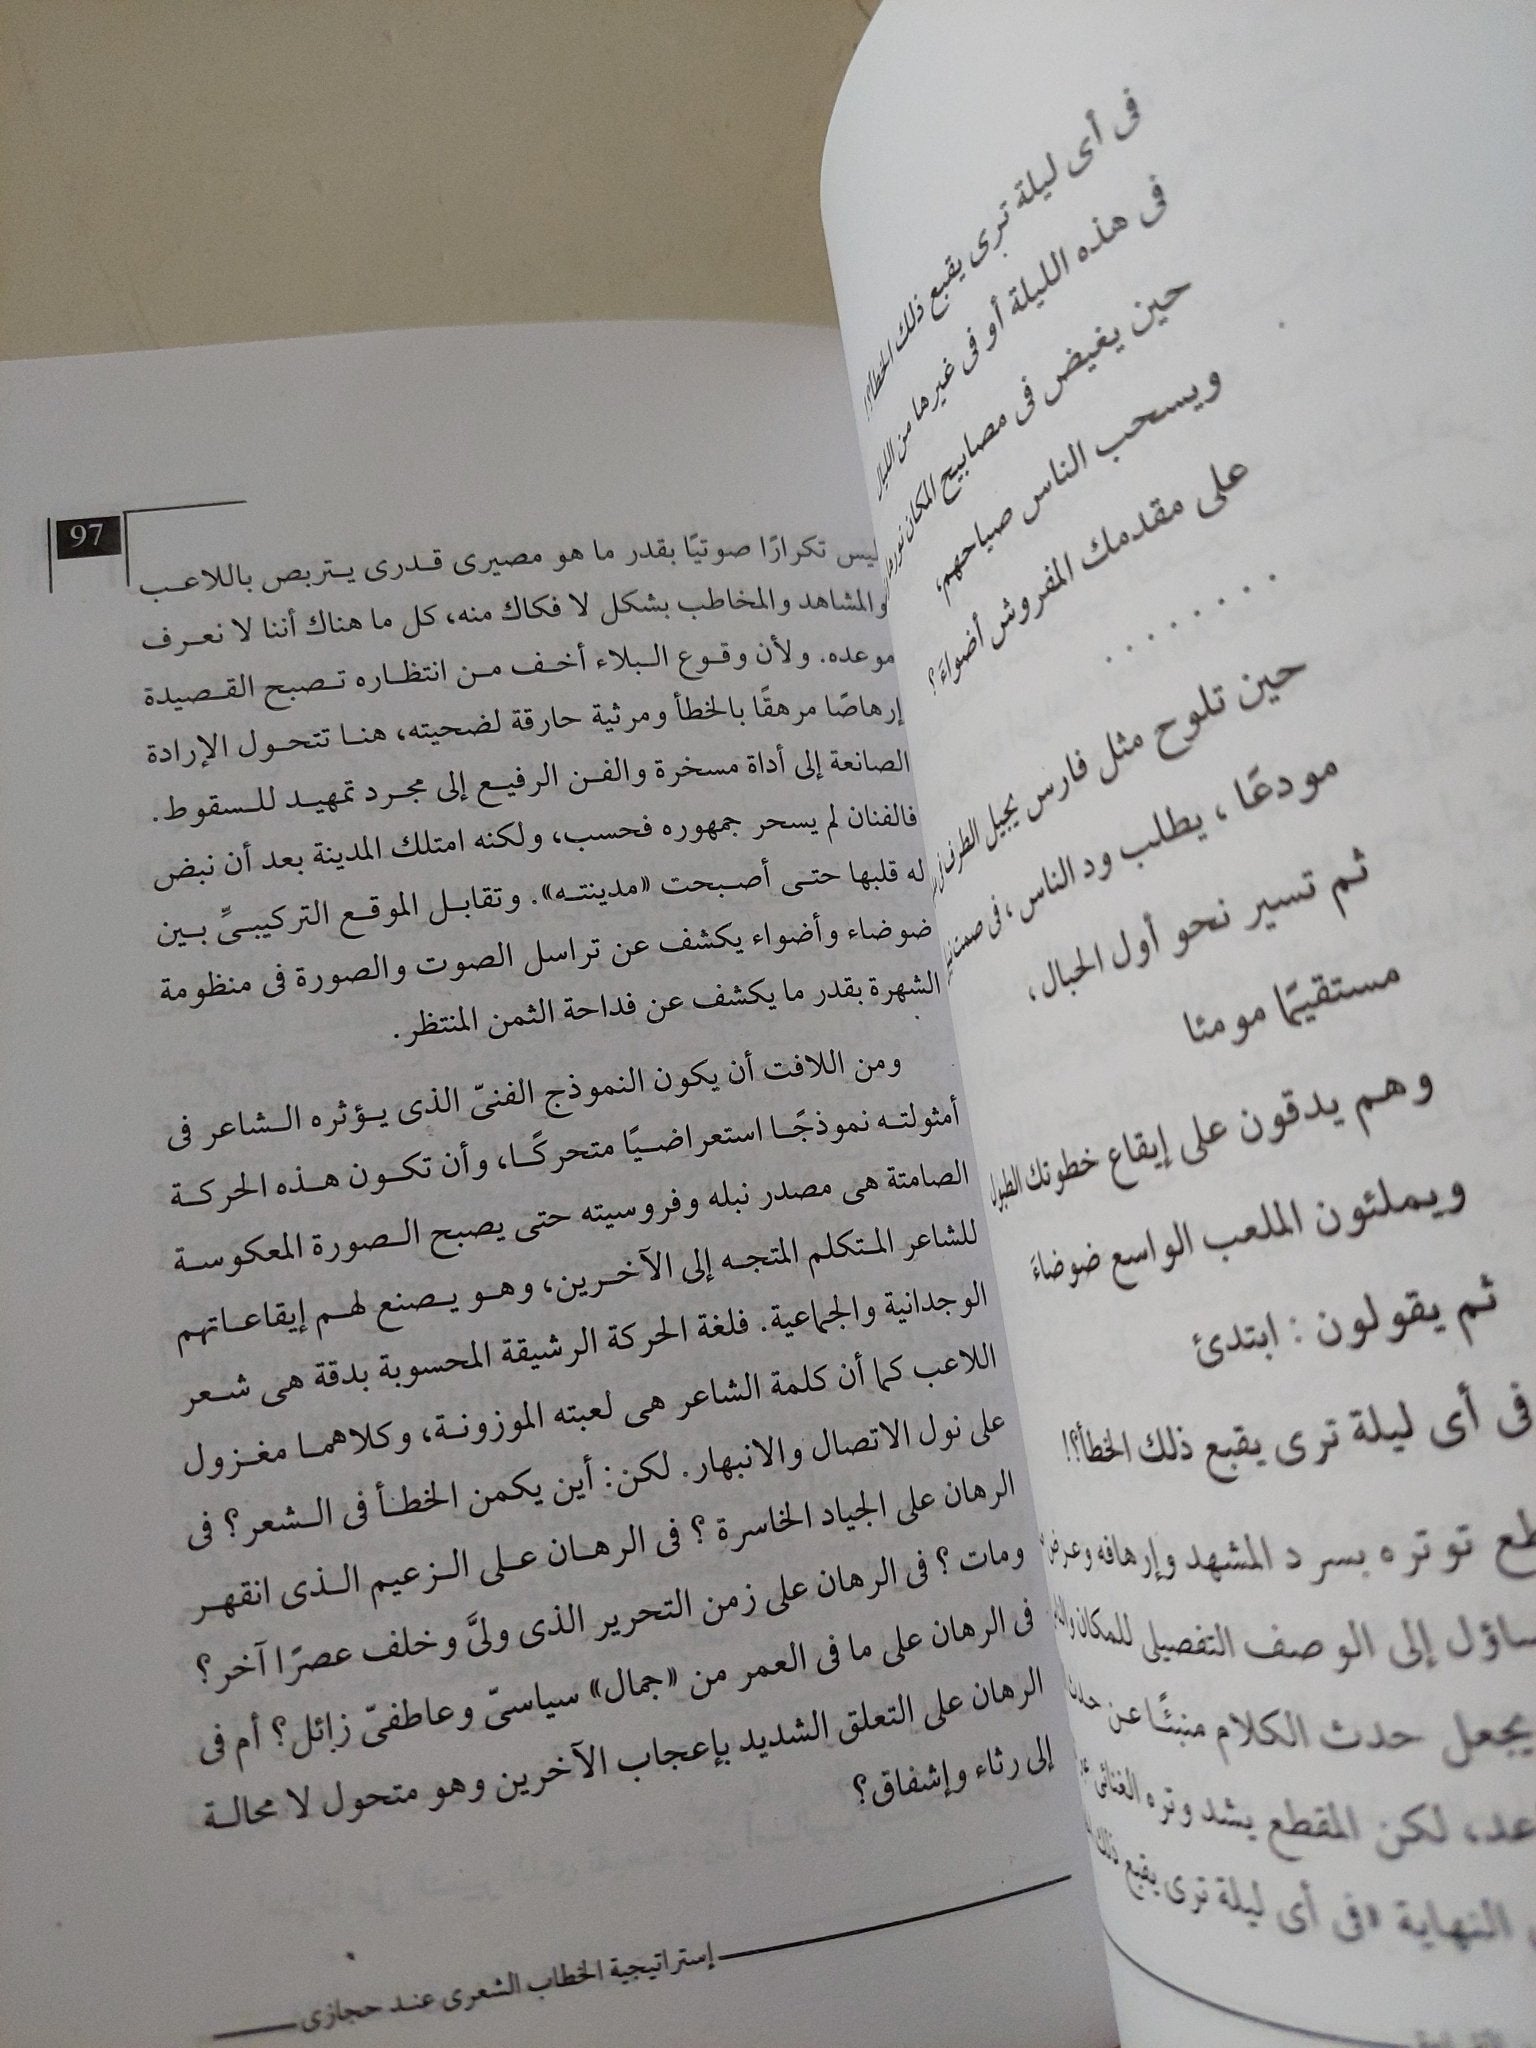 فى أى ليلة ترى يقبع ذلك الخطأ؟!
فى هذه الليلة أو فى غيرها من الليال
حين يغيض فى مصابيح المكان نورها
ويسحب الناس صياحهم،
على مقدمك المفروش أضواءَ؟
.......
حين تلوح مثل فارس يجيل الطرف فى
مودعًا، يطلب ود الناس، فى صمت
ثم تسير نحو أول الحبال،
مستقيمًا مومئا
وهم يدقون على إيقاع خطوتك الطبول
ويملئون الملعب الواسع ضوضاءَ
ثم يقولون: ابتدئ
فى أى ليلة ترى يقبع ذلك الخطأ؟!
توتره بسرد المشهد وإرهافه
إلى الوصف التفصيلى للمكان
يجعل حدث الكلام منبئًا عن
لكن المقطع يشد وتره الغنائى
النهاية «فى أى ليلة ترى يقبع ذلك
97
ليس تكرارًا صوتيًا بقدر ما هو مصيرى قدرى يتربص باللاعب
والمشاهد والمخاطب بشكل لا فكاك منه، كل ما هناك أننا لا نعرف
موعده. ولأن وقوع البلاء أخف من انتظاره تصبح القصيدة
إرهاصًا مرهقًا بالخطأ ومرثية حارقة لضحيته، هنا تتحول الإرادة
الصانعة إلى أداة مسخرة والفن الرفيع إلى مجرد تمهيد للسقوط.
فالفنان لم يسحر جمهوره فحسب، ولكنه امتلك المدينة بعد أن نبض
له قلبها حتى أصبحت «مدينته». وتقابل الموقع التركيبىِّ بين
ضوضاء وأضواء يكشف عن تراسل الصوت والصورة فى منظومة
الشهرة بقدر ما يكشف عن فداحة الثمن المنتظر.
ومن اللافت أن يكون النموذج الفنىّ الذى يؤثره الشاعر فى
أمثولته نموذجًا استعراضيًا متحركًا، وأن تكون هذه الحركة
الصامتة هى مصدر نبله وفروسيته حتى يصبح الصورة المعكوسة
للشاعر المتكلم المتجه إلى الآخرين، وهو يصنع لهم إيقاعاتهم
الوجدانية والجماعية. فلغة الحركة الرشيقة المحسوبة بدقة هى شعر
اللاعب كما أن كلمة الشاعر هى لعبته الموزونة، وكلاهما مغزول
على نول الاتصال والانبهار. لكن: أين يكمن الخطأ فى الشعر؟ فى
الرهان على الجياد الخاسرة؟ فى الرهان على الزعيم الذى انقهر
ومات؟ فى الرهان على زمن التحرير الذى ولىَّ وخلف عصرًا آخر؟
فى الرهان على ما فى العمر من «جمال» سياسىّ وعاطفىّ زائل؟ أم فى
الرهان على التعلق الشديد بإعجاب الآخرين وهو متحول لا محالة
إلى رثاء وإشفاق؟
إستراتيجية الخطاب الشعرى عند حجازى